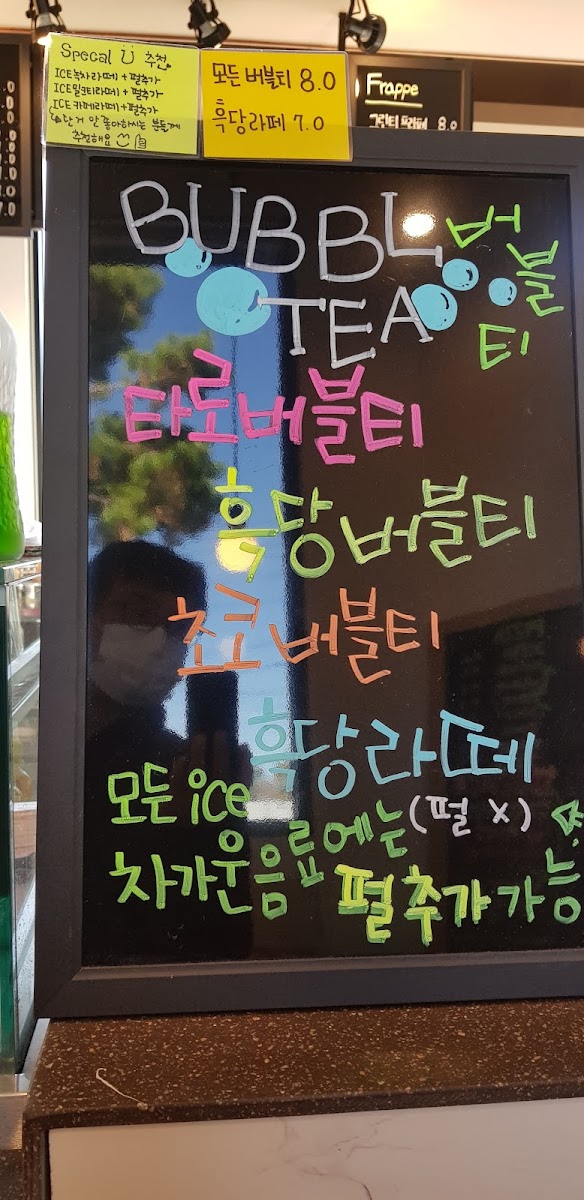 Specal 추천
ICE녹차라떼+펄추가
ICE밀크티라떼+펄추가
ICE카페라떼+펄추가
단거 안 좋아하시는 분들께
추천해요
모든 버블티 8.0
흑당라떼 7.0
Frappe
8.0
BUBBL
TEA
버블티
타로버블티
흑당버블티
쵸코버블티
흑당라떼
(펄 X)
모든 ice
차가운음료에는
펄추가가능